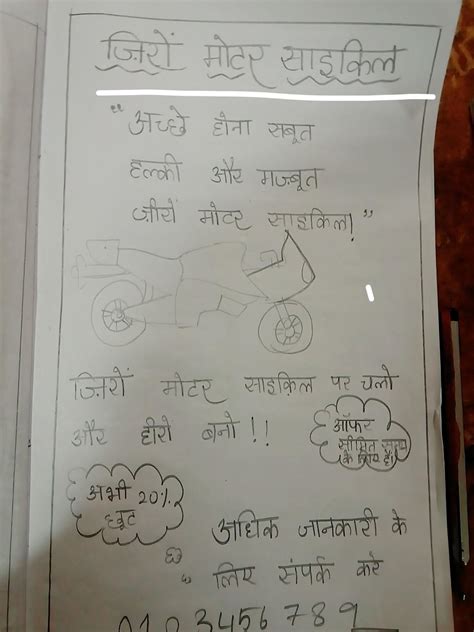 ज़िरों मोटर साइकिल
"अच्छे होना सबूत
हल्की और मज्बूत
ज़ीरों मोटर साइकिल!"
ज़िरों मोटर साइक़िल पर चलो
और हीरो बनो !!
ऑफर
सीमित समय
के लिए है।
अभी 20%
छूट
अधिक जानकारी के
लिए संपर्क करे
0103456789